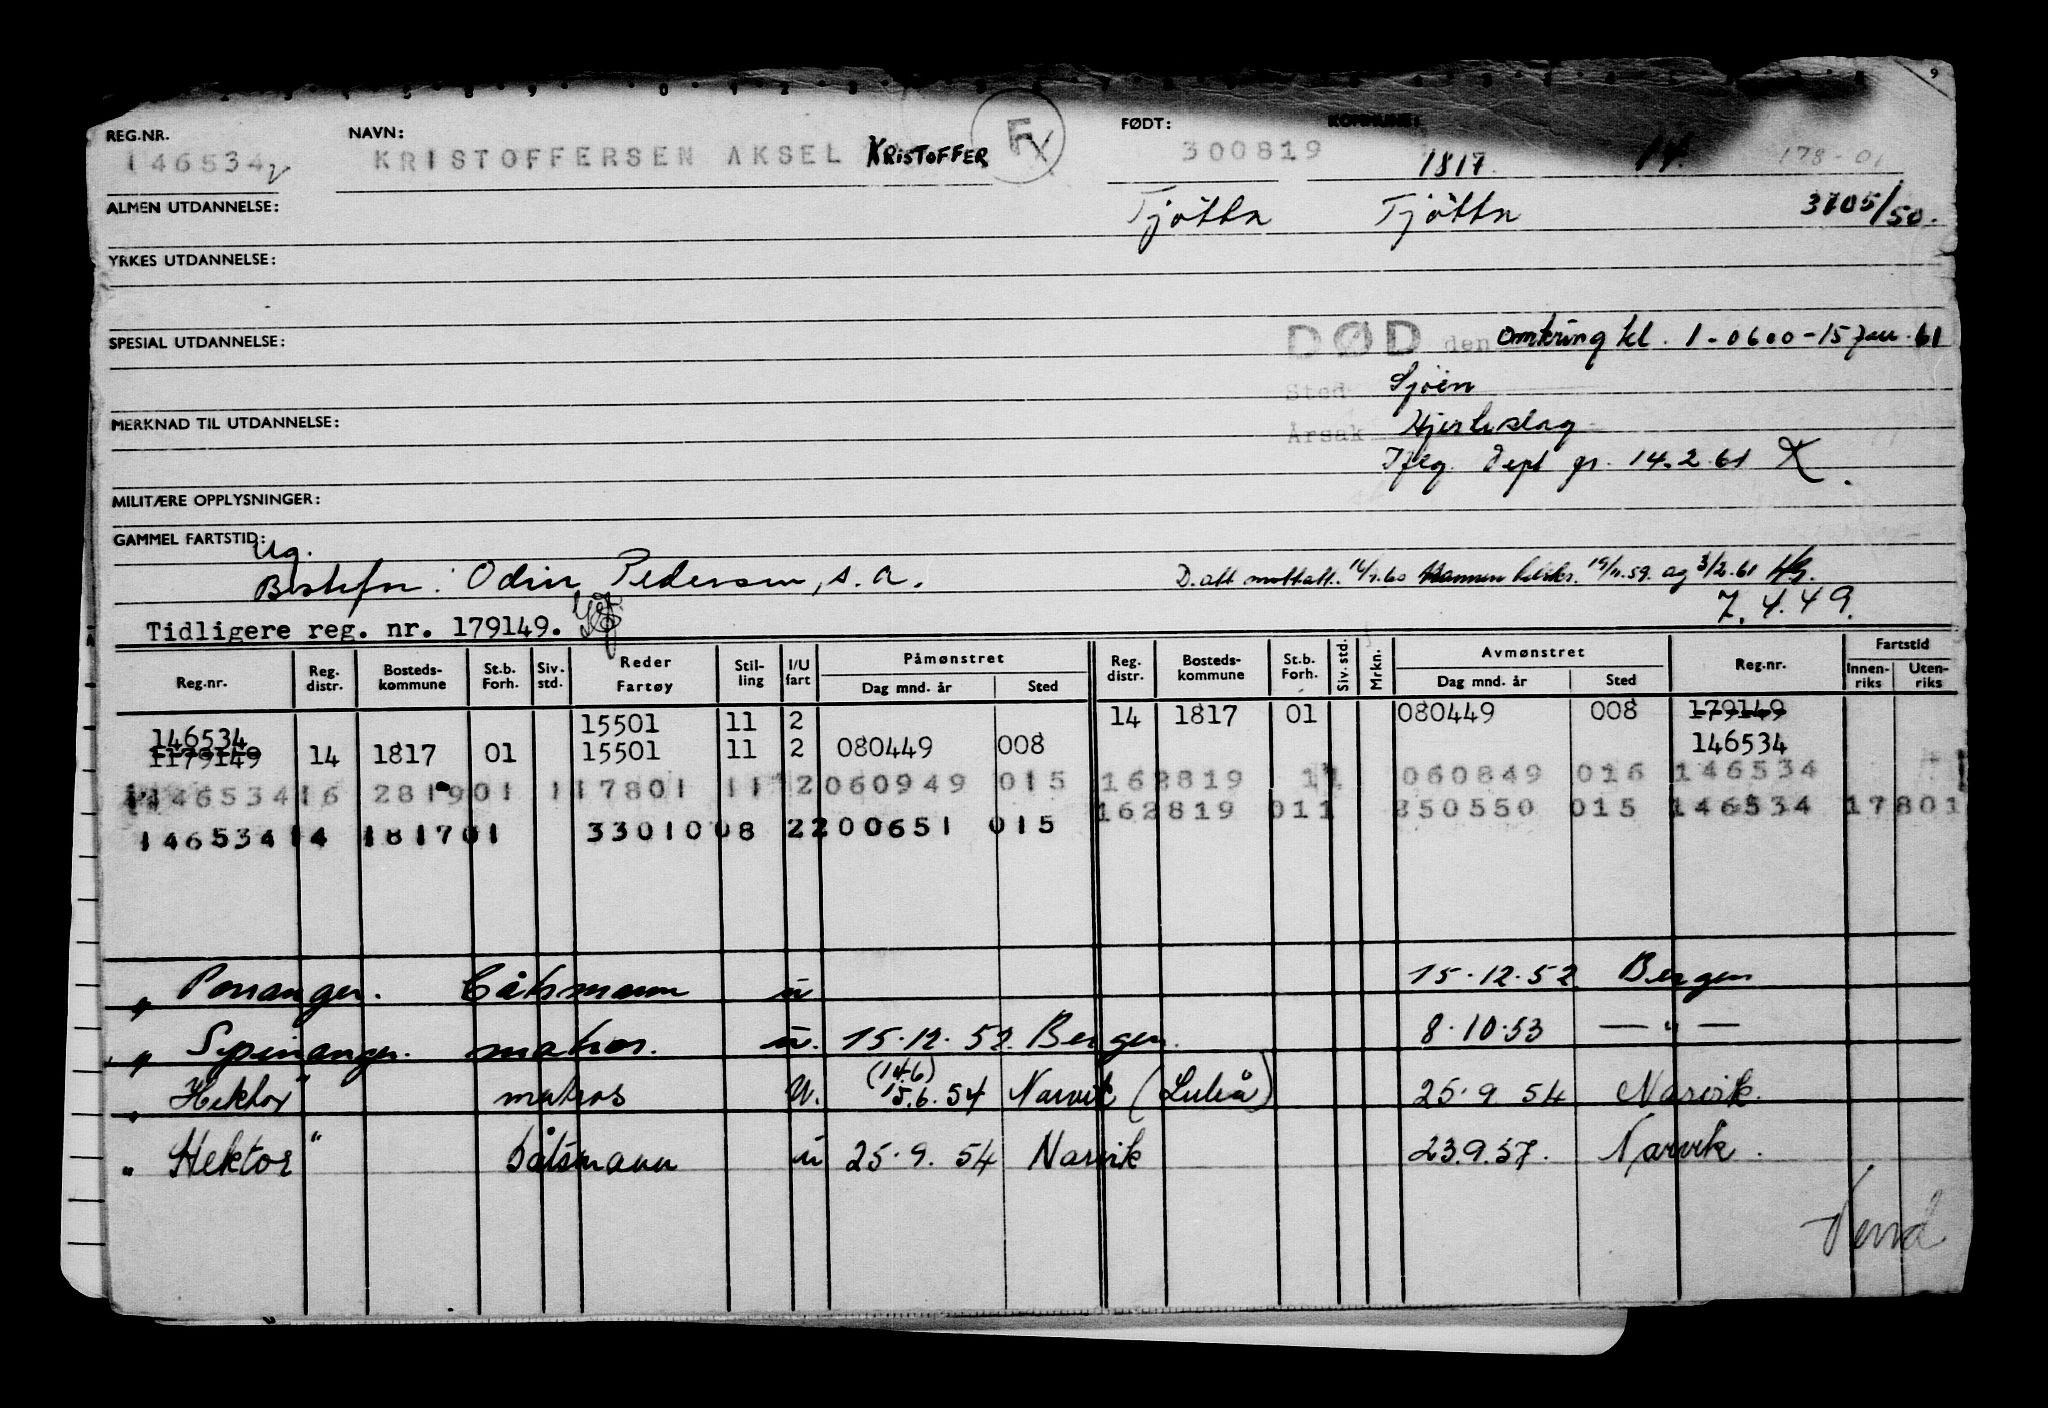 REG.NR. NAVN: FØDT: KOMMUNE:
146534 KRISTOFFERSEN AKSEL KRISTOFFER F 300819 1817 14. 178-01
ALMEN UTDANNELSE: Tjötta Tjötta 3705/50.
YRKES UTDANNELSE:
SPESIAL UTDANNELSE: DØD den Omkring kl. 1-0600-15 Jan. 61
Sted Sjöen
MERKNAD TIL UTDANNELSE: Årsak Hjerteslag
Iflg. Dept gr. 14.2.61
MILITÆRE OPPLYSNINGER:
GAMMEL FARTSTID:
Ug.
Bestefar: Odin Pedersen, s. a. D.att mottatt. 3/2.61
7.4.49.
Tidligere reg. nr. 179149.
Reg.nr. Reg. distr. Bosteds-kommune St.b. Forh. Siv. std. Reder Fartøy Stil-ling I/U fart Påmønstret Dag mnd. år Sted Reg. distr. Bosteds-kommune St.b. Forh. Siv. std. Mrkn. Avmønstret Dag mnd. år Sted Reg.nr. Fartstid Innen-riks Uten-riks
15501 11 2 14 1817 01 080449 008 179149
146534
1179149 14 1817 01 15501 11 2 080449 008 146534
146534 16 2819 01 1 17801 11 2 060949 015 16 2819 11 060849 016 146534
162819 011 250550 015 146534 17801
146534 14 1817 01 33010 08 2 200651 015
" Porsanger. båtsmann u 15.12.52 Bergen
" Spinanger. matros. u. 15.12.52. Bergen. 8.10.53 — " —
(14.6)
" Hektor" matros u. 15.6.54 Narvik (Luleå) 25.9 54 Narvik.
" Hektor" båtsmann u 25.9.54 Narvik 23.9.57. Narvik.
Vend